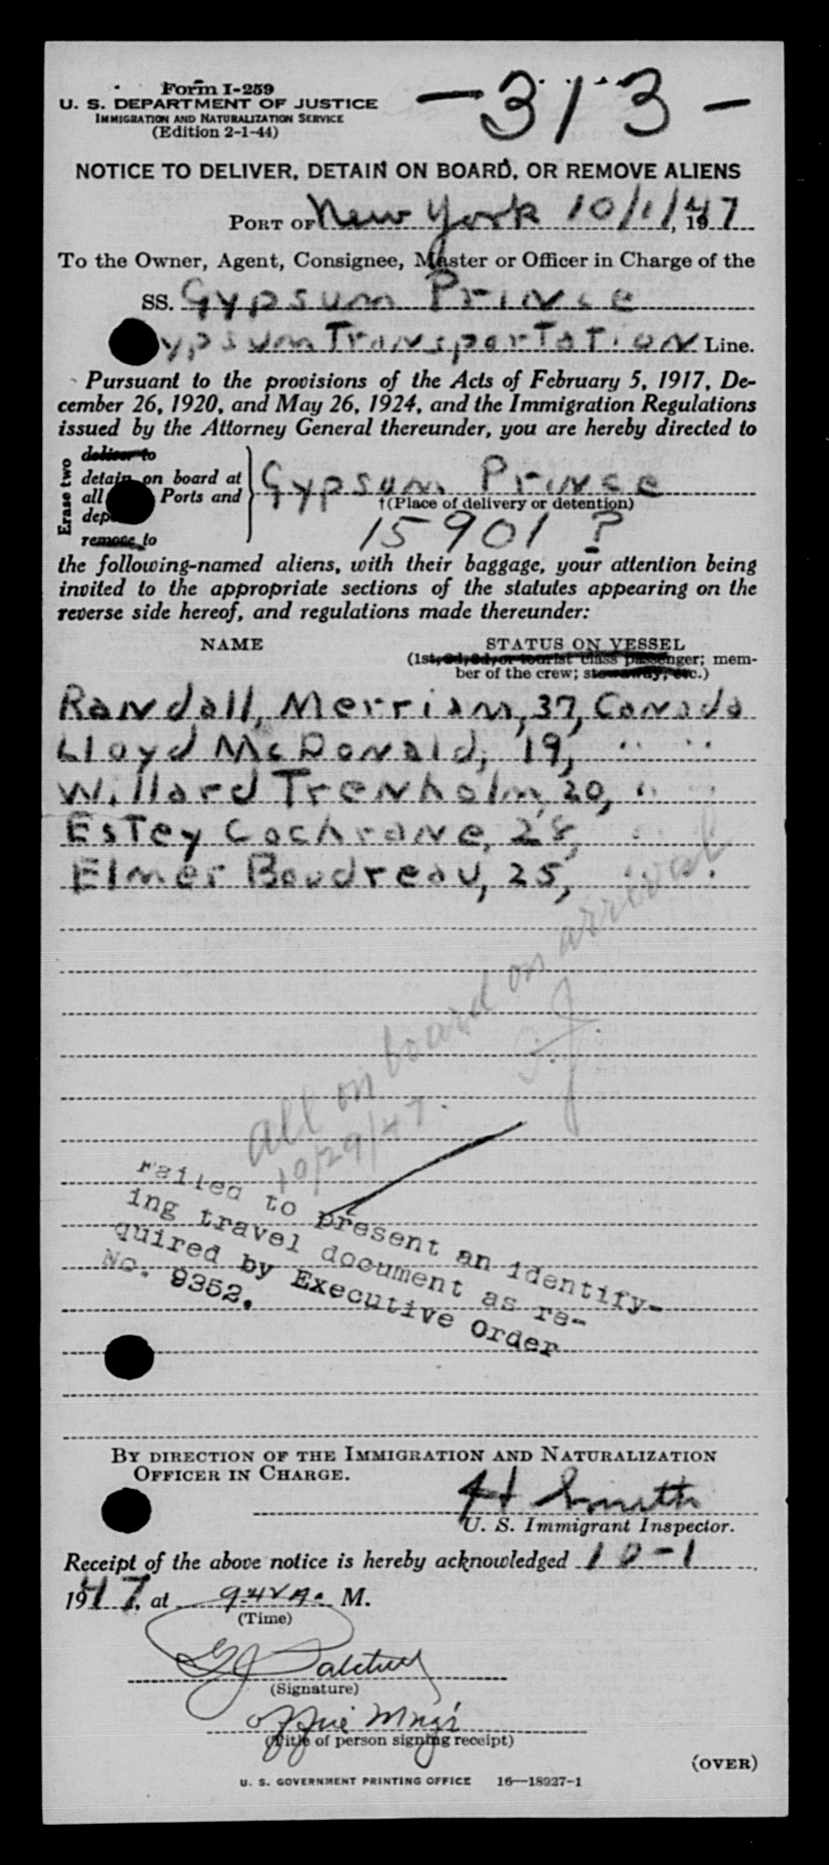 Form I-259
U. S. DEPARTMENT OF JUSTICE
IMMIGRATION AND NATURALIZATION SERVICE
(Edition 2-1-44)
-313-
NOTICE TO DELIVER, DETAIN ON BOARD, OR REMOVE ALIENS
PORT OF New York 10/1/, 1947
To the Owner, Agent, Consignee, Master or Officer in Charge of the
SS. Gypsum Prince
ypsum Transportation Line.
Pursuant to the provisions of the Acts of February 5, 1917, De-
cember 26, 1920, and May 26, 1924, and the Immigration Regulations
issued by the Attorney General thereunder, you are hereby directed to
Erase two
deliver to
detain on board at
all Ports and
dep
remove to
Gypsum Prince
†(Place of delivery or detention)
15901 ?
the following-named aliens, with their baggage, your attention being
invited to the appropriate sections of the statutes appearing on the
reverse side hereof, and regulations made thereunder:
NAME STATUS ON VESSEL
(1st, 2d, 3d, or tourist class passenger; mem-
ber of the crew; stowaway, etc.)
Randall, Merriam, 37, Canada
Lloyd McDonald, 19, " "
Willard Trenholm, 20, "
Estey Cochrane, 28, "
Elmer Boudreau, 25, " "
all on board on arrival
10/29/47.
Failed to present an identify-
ing travel document as re-
quired by Executive Order
No. 9352.
BY DIRECTION OF THE IMMIGRATION AND NATURALIZATION
OFFICER IN CHARGE.
H Smith
U. S. Immigrant Inspector.
Receipt of the above notice is hereby acknowledged 10-1
1947, at 9:42 A. M.
(Time)
(Signature)
Office Mngr
(Title of person signing receipt)
(OVER)
U. S. GOVERNMENT PRINTING OFFICE 16—18927-1